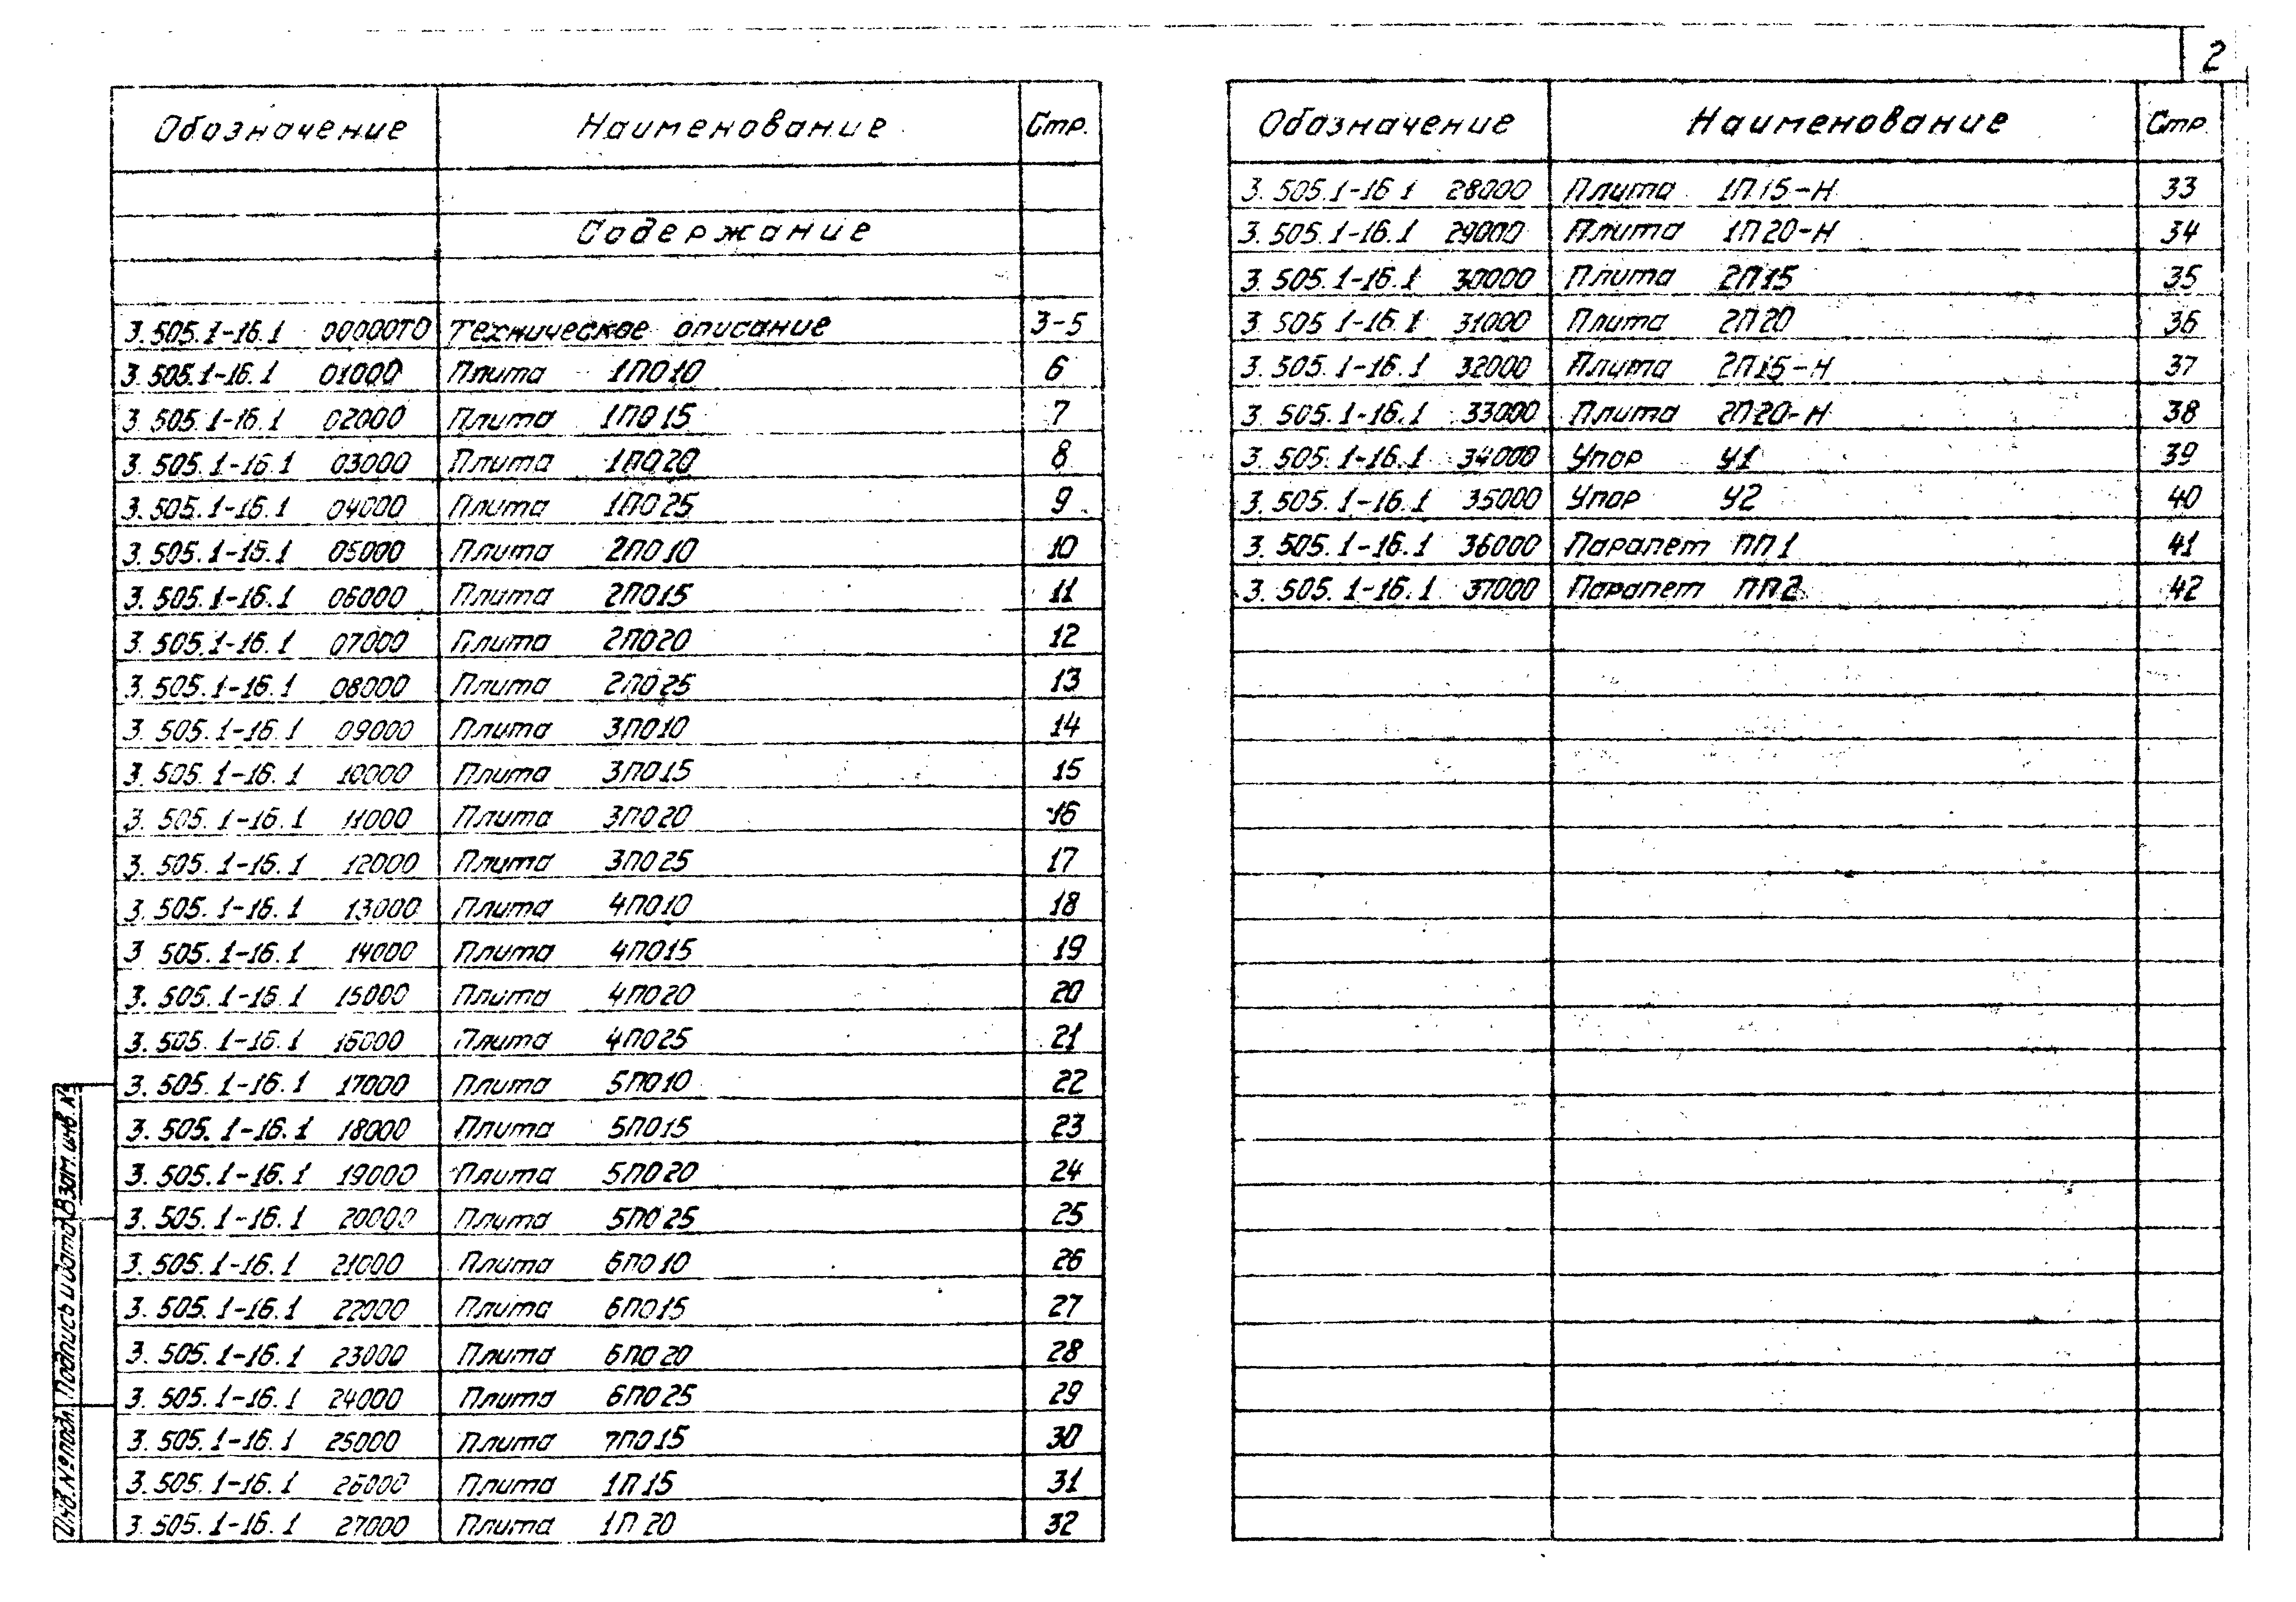 2
Обозначение Наименование Стр.
Содержание
3.505.1-16.1 00000ТО Техническое описание 3-5
3.505.1-16.1 01000 Плита 1ПО10 6
3.505.1-16.1 02000 Плита 1ПО15 7
3.505.1-16.1 03000 Плита 1ПО20 8
3.505.1-16.1 04000 Плита 1ПО25 9
3.505.1-16.1 05000 Плита 2ПО10 10
3.505.1-16.1 06000 Плита 2ПО15 11
3.505.1-16.1 07000 Плита 2ПО20 12
3.505.1-16.1 08000 Плита 2ПО25 13
3.505.1-16.1 09000 Плита 3ПО10 14
3.505.1-16.1 10000 Плита 3ПО15 15
3.505.1-16.1 11000 Плита 3ПО20 16
3.505.1-16.1 12000 Плита 3ПО25 17
3.505.1-16.1 13000 Плита 4ПО10 18
3 505.1-16.1 14000 Плита 4ПО15 19
3.505.1-16.1 15000 Плита 4ПО20 20
3.505.1-16.1 16000 Плита 4ПО25 21
3.505.1-16.1 17000 Плита 5ПО10 22
3.505.1-16.1 18000 Плита 5ПО15 23
3.505.1-16.1 19000 Плита 5ПО20 24
3.505.1-16.1 20000 Плита 5ПО25 25
3.505.1-16.1 21000 Плита 6ПО10 26
3.505.1-16.1 22000 Плита 6ПО15 27
3.505.1-16.1 23000 Плита 6ПО20 28
3.505.1-16.1 24000 Плита 6ПО25 29
3.505.1-16.1 25000 Плита 7ПО15 30
3.505.1-16.1 26000 Плита 1П15 31
3.505.1-16.1 27000 Плита 1П20 32
Обозначение Наименование Стр.
3.505.1-16 1 28000 Плита 1П15-Н 33
3.505.1-16.1 29000 Плита 1П20-Н 34
3.505.1-16.1 30000 Плита 2П15 35
3.505 1-16.1 31000 Плита 2П20 36
3.505.1-16.1 32000 Плита 2П15-Н 37
3.505.1-16.1 33000 Плита 2П20-Н 38
3.505.1-16.1 34000 Упор У1 39
3.505.1-16.1 35000 Упор У2 40
3.505.1-16.1 36000 Парапет ПП1 41
3.505.1-16.1 37000 Парапет ПП2 42
Инв.№ подл. Подпись и дата Взам.инв.№